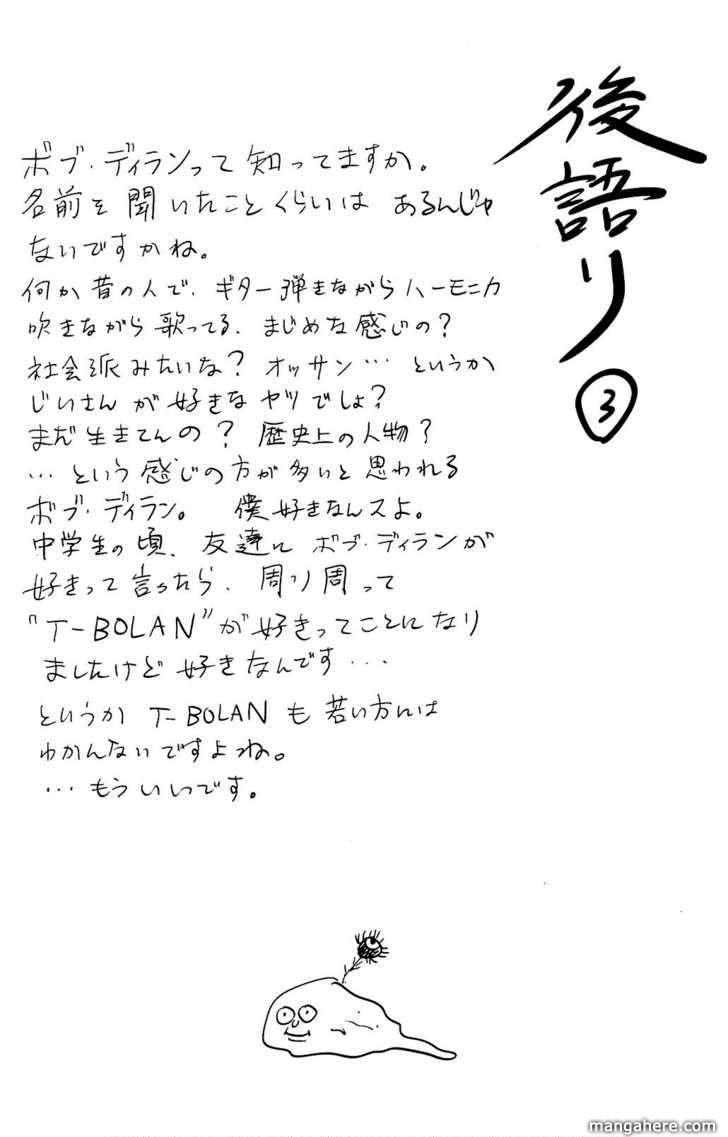 後語り
③
ボブ・ディランって知ってますか。
名前を聞いたことくらいは あるんじゃ
ないですかね。
何か昔の人で、ギター弾きながらハーモニカ
吹きながら歌ってる、まじめな感じの？
社会派みたいな？ オッサン… というか
じいさんが好きなヤツでしょ？
まだ生きてんの？ 歴史上の人物？
…という感じの方が多いと思われる
ボブ・ディラン。 僕好きなんスよ。
中学生の頃、友達に ボブ・ディランが
好きって言ったら、周り周って
"T-BOLAN"が好きってことになり
ましたけど好きなんです…
というか T-BOLANも若い方には
わかんないですよね。
…もういいです。
mangahere.com